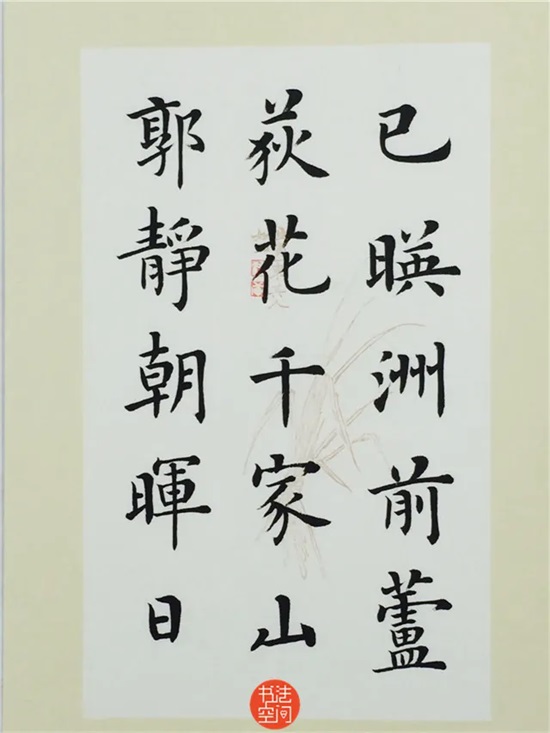 已暎洲前蘆
荻花千家山
郭靜朝暉日
书法
空间